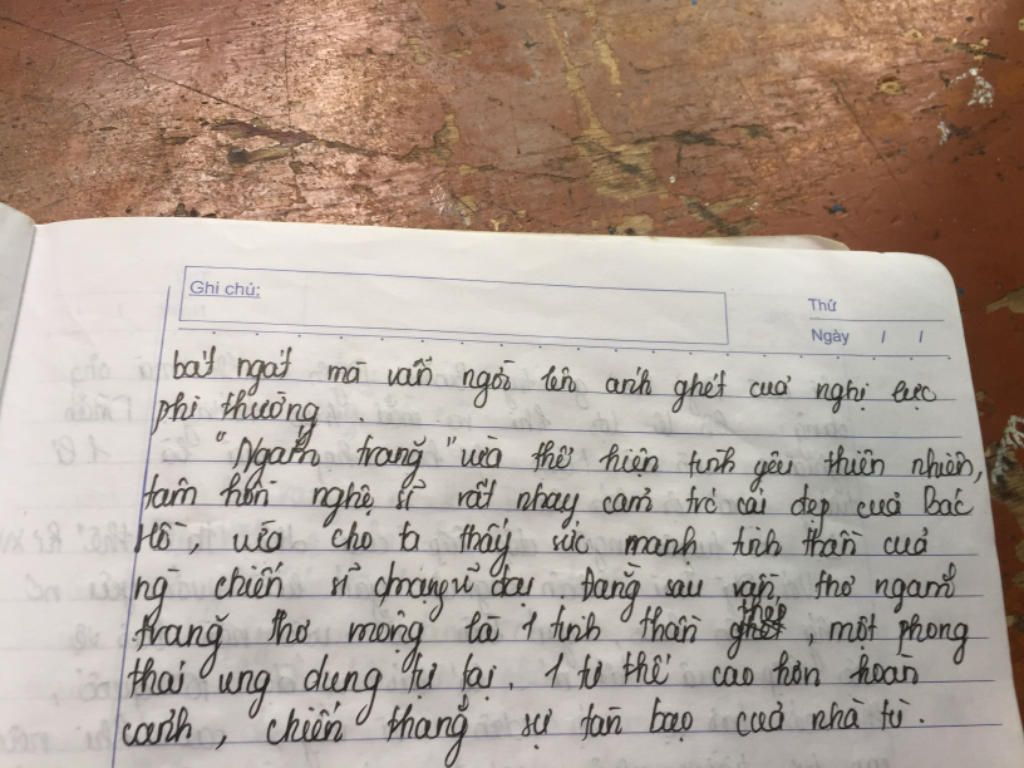 Ghi chú:
Thứ
Ngày / /
bát ngát mà vẫn ngời lên anh ghét của nghị lực
phi thường
"Ngắm trăng" vừa thể hiện tình yêu thiên nhiên,
tâm hồn nghệ sĩ rất nhạy cảm trc cái đẹp của Bác
Hồ, vừa cho ta thấy sức mạnh tinh thần của
ng chiến sĩ vĩ đại Đằng sau vần thơ ngắm
trăng thơ mộng là 1 tinh thần thép, một phong
thái ung dung tự tại. 1 tư thế cao hơn hoàn
cảnh, chiến thắng sự tàn bạo của nhà tù.